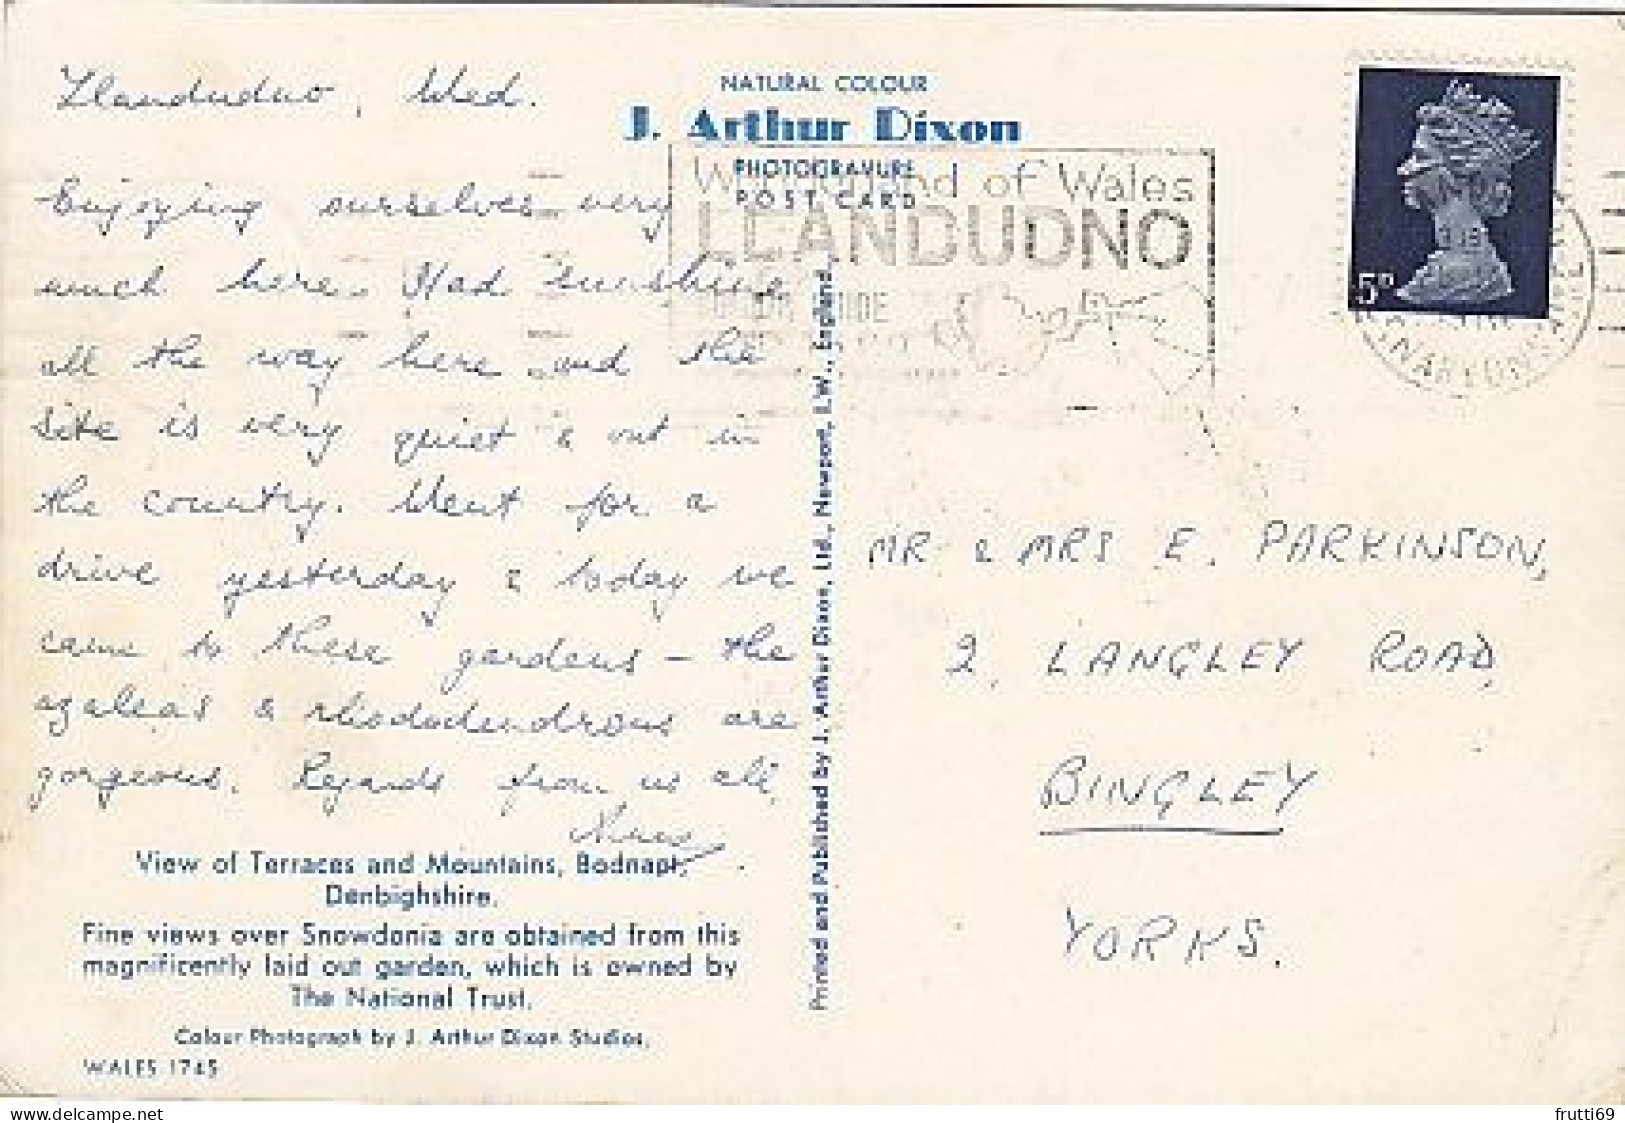 Llandudno, Wed.
Enjoying ourselves very
much here. Had sunshine
all the way here and the
site is very quiet & out in
the country. Went for a
drive yesterday & today we
came to these gardens – the
azaleas & rhododendrons are
gorgeous. Regards from us all,
View of Terraces and Mountains, Bodnant,
Denbighshire.
Fine views over Snowdonia are obtained from this
magnificently laid out garden, which is owned by
The National Trust.
Colour Photograph by J. Arthur Dixon Studios.
WALES 1745
NATURAL COLOUR
J. Arthur Dixon
PHOTOGRAVURE
POST CARD
Printed and Published by J. Arthur Dixon, Ltd., Newport, I.W., England.
of Wales
LLANDUDNO
5D
MR & MRS E. PARKINSON,
2, LANGLEY ROAD,
BINGLEY
YORKS.
www.delcampe.net
frutti69